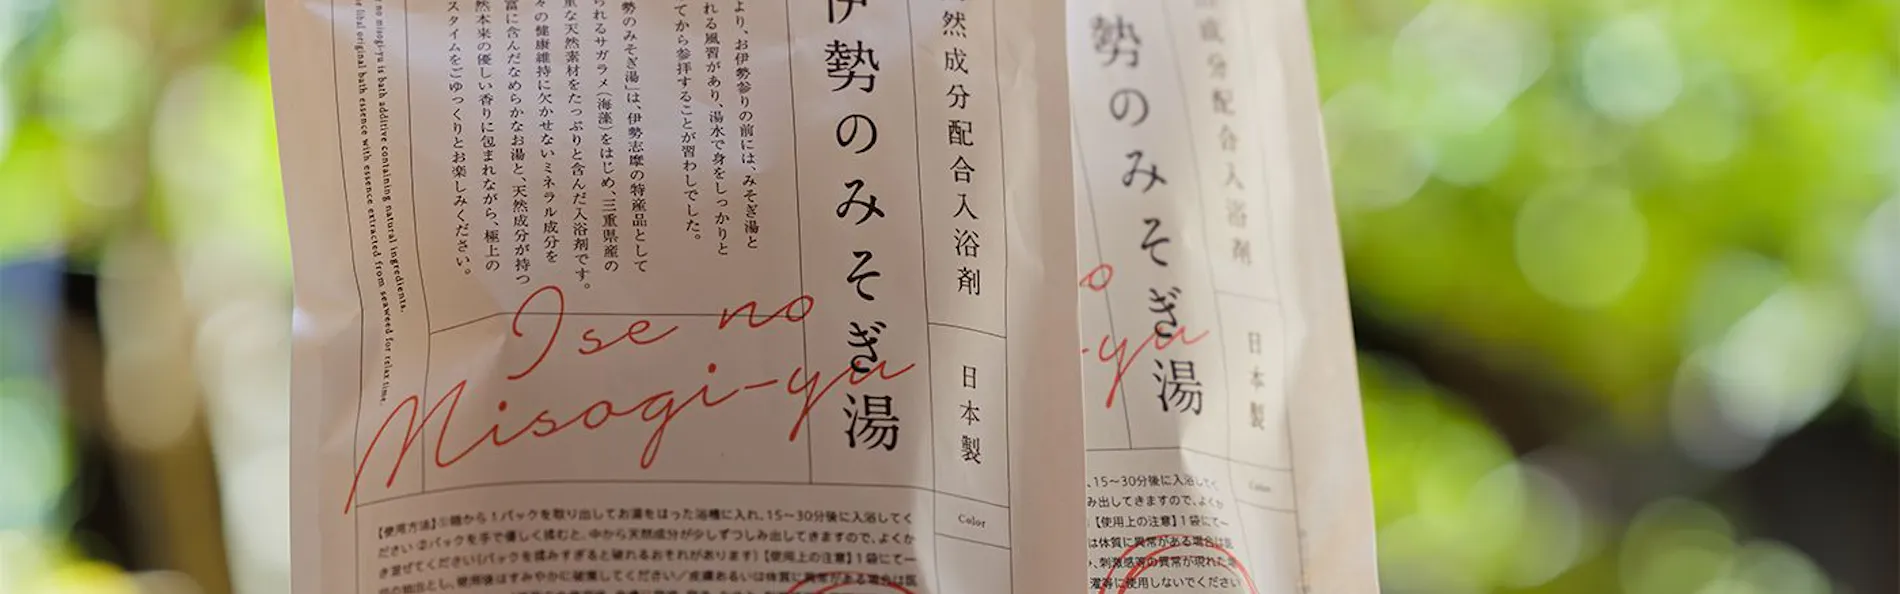 然成分配合入浴剤
日本製
Color
伊勢のみそぎ湯
より、お伊勢参りの前には、みそぎ湯と
れる風習があり、湯水で身をしっかりと
てから参拝することが習わしでした。
勢のみそぎ湯」は、伊勢志摩の特産品として
られるサガラメ(海藻)をはじめ、三重県産の
重な天然素材をたっぷりと含んだ入浴剤です。
々の健康維持に欠かせないミネラル成分を
富に含んだなめらかなお湯と、天然成分が持つ
然本来の優しい香りに包まれながら、極上の
スタイムをごゆっくりとお楽しみください。
no misogi-yu is bath additive containing natural ingredients.
original bath essence with essence extracted from seaweed for relax time.
Ise no
Misogi-yu
【使用方法】①箱から1パックを取り出してお湯をはった浴槽に入れ、15〜30分後に入浴してく
ださい②パックを手で優しく揉むと、中から天然成分が少しずつしみ出してきますので、よくか
き混ぜてください(パックを揉みすぎると破れるおそれがあります)【使用上の注意】1袋にて一
とし、使用後はすみやかに破棄してください/皮膚あるいは体質に異常がある場合は医
成分配合入浴剤
日本製
Color
勢のみそぎ湯
o
-yu
、15〜30分後に入浴してく
み出してきますので、よくか
【使用上の注意】1袋にて一
は体質に異常がある場合は医
、刺激感等の異常が現れた場
灌等に使用しないでください